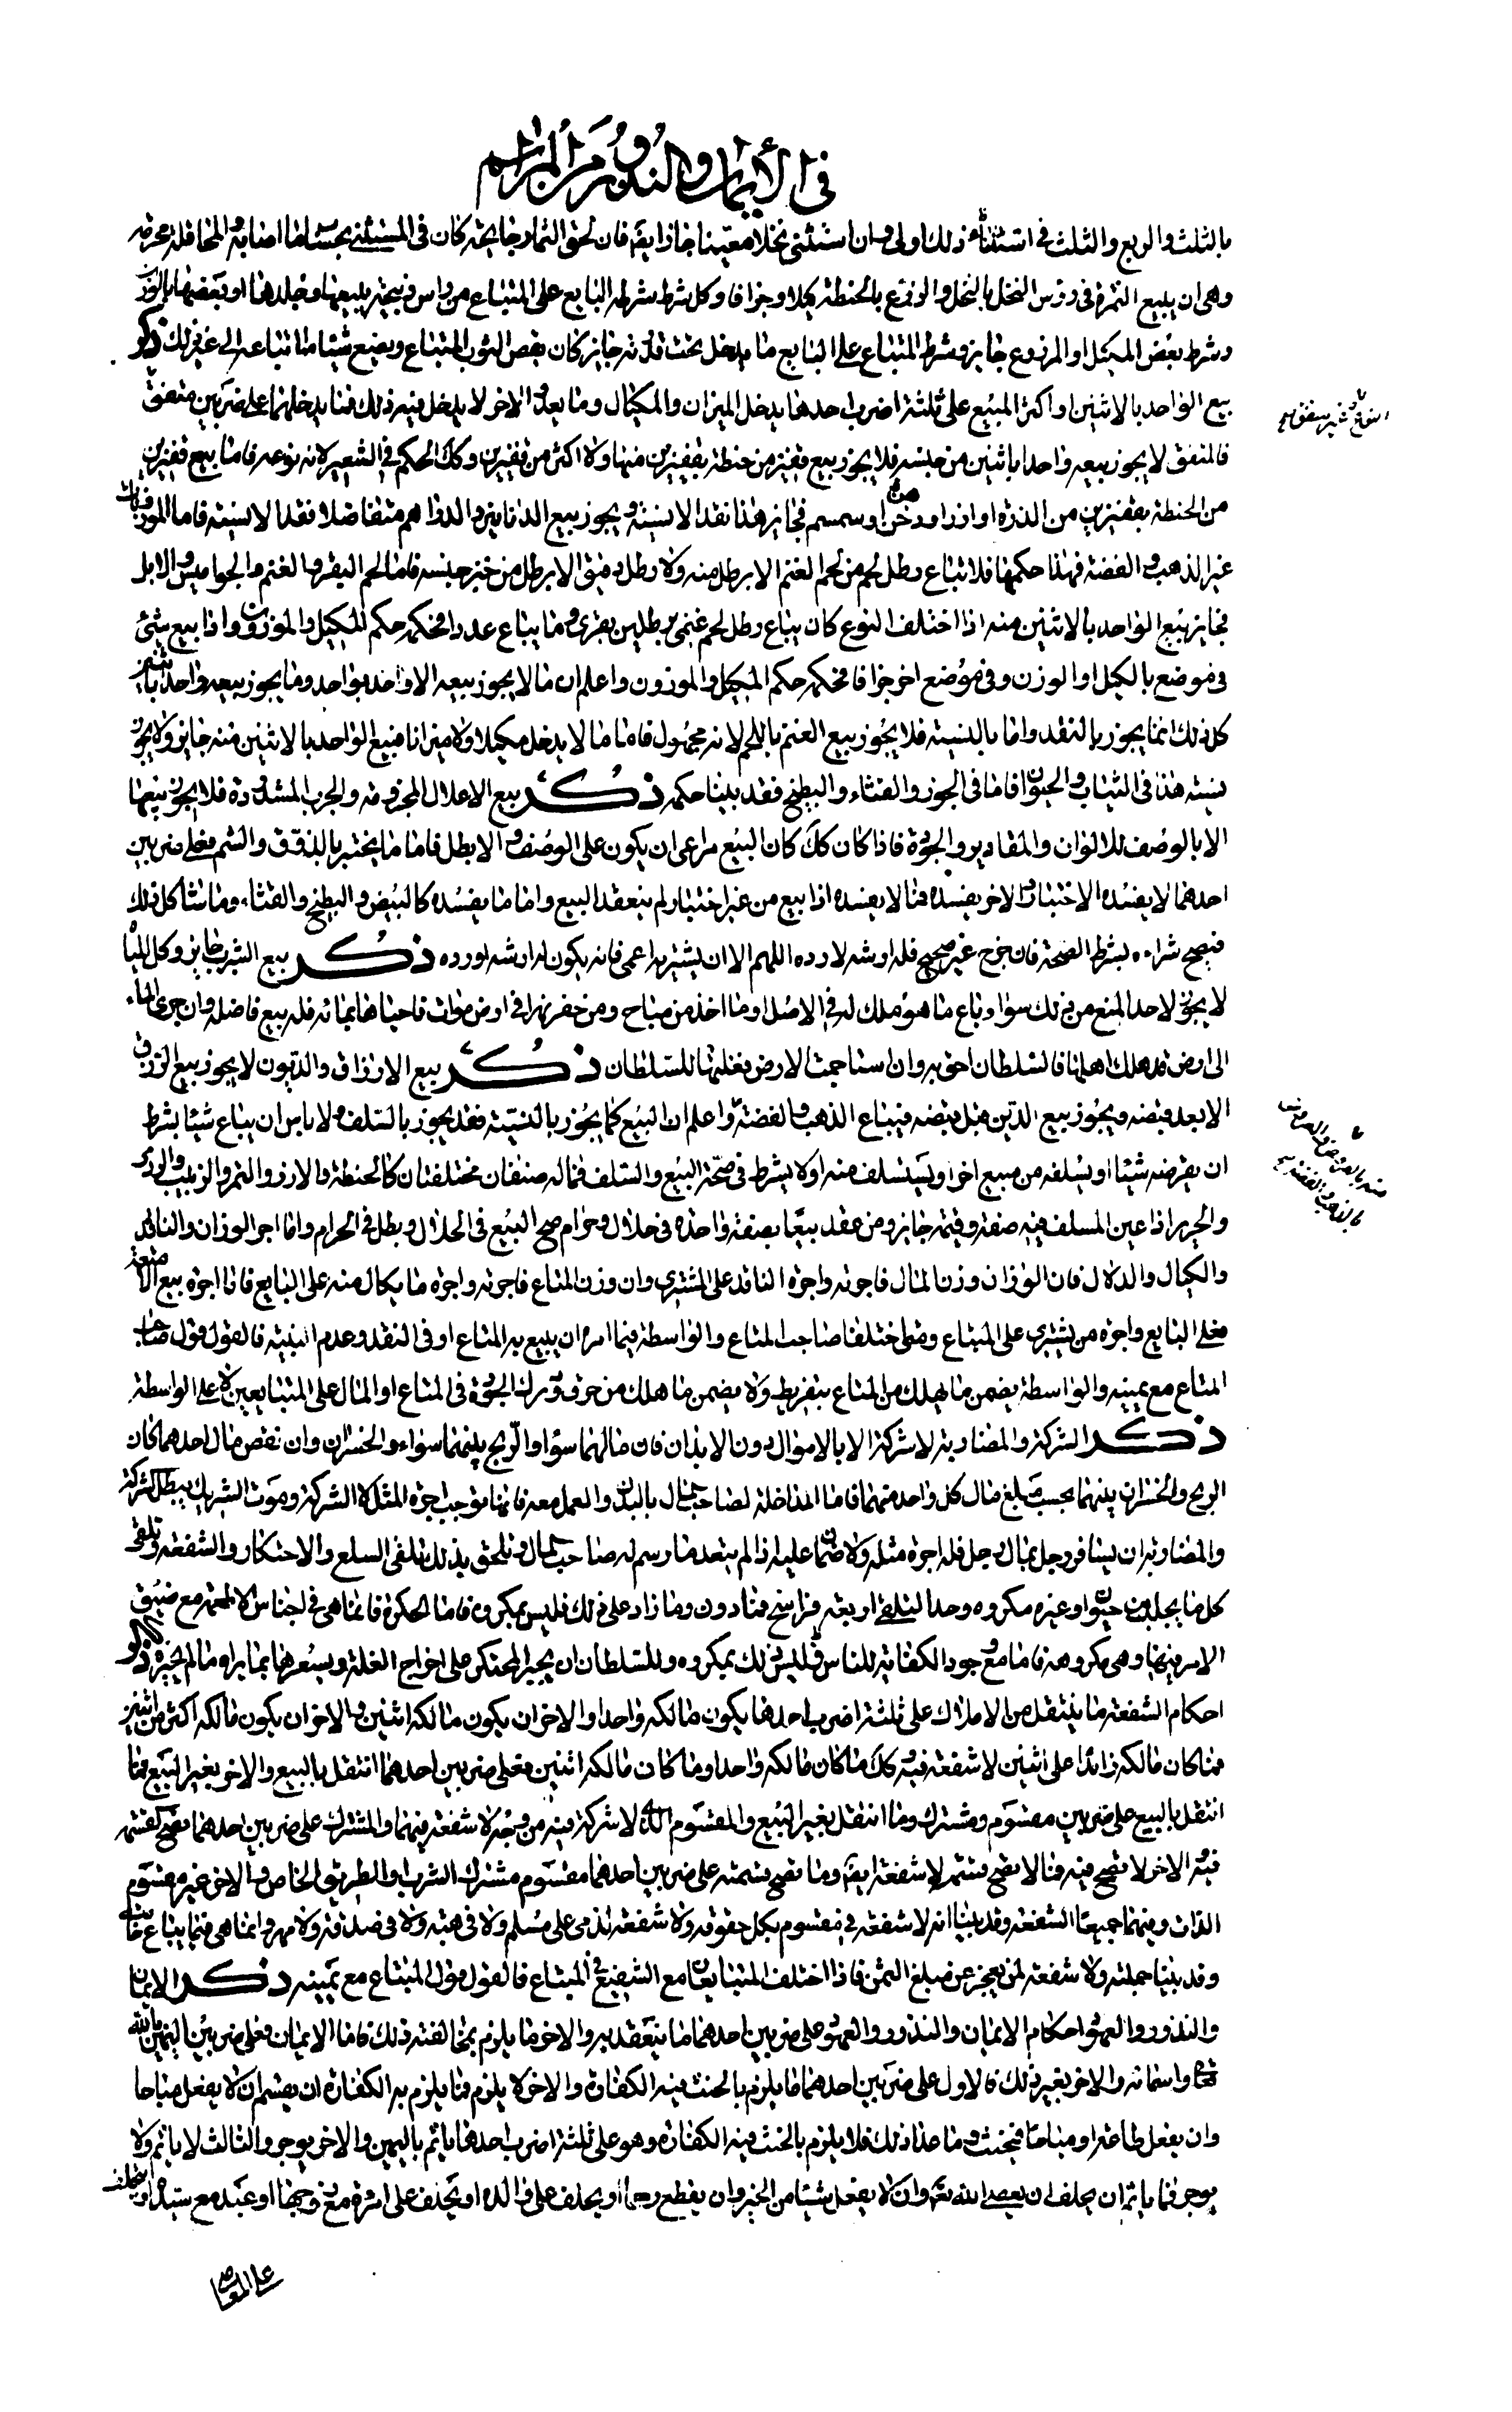 في الأيمان والنذور من المراسم
بالثلث والربع والثلث في استثناء ذلك اولى وان استثنى نخلا معينا جاز ايضا فان لحق الثمار جايحة كان في المستثنى بحسب ما اصابه والمحاقلة محرمة
وهى ان يبيع الثمرة في رؤس النخل بالنخل والزرع بالحنطة كيلا وجزافا وكل شرط شرطه البايع على المبتاع من راس ذبيحة يبيعها وجلدها او بعضها بالوزن
وشرط بعض المكيل او المزروع جايز وشرط المبتاع على البايع ما يدخل تحت قدرته جايز كان يقص الثوب المبتاع ويصنع شيئا مما ابتاعه الى غير ذلك ذكر
بيع الواحد بالاثنين او اكثر المبيع على ثلثة اضرب احدها يدخل الميزان والمكيال وما يعد والاخر لا يدخل فيه ذلك فما يدخلهما على ضربين متفق
فالمتفق لا يجوز بيعه واحدا باثنين من جنسه فلا يجوز بيع قفيز من حنطة بقفيزين منها ولا اكثر من قفيزين وكك الحكم في الشعير لانه نوعه فاما بيع قفيزين
من الحنطة بقفيزين من الذرة او ارز او دخن او سمسم فجايز هذا نقدا لا نسية ويجوز بيع الدنانير والدراهم متفاضلا نقدا لا نسية فاما الموزونات
غير الذهب والفضة فهذا حكمها فلا تباع رطل لحم من لحم الغنم الا برطل منه ولا رطل دقيق الا برطل من خبز جنسه فاما لحم البقر والغنم والجواميس والابل
فجايز بيع الواحد بالاثنين منه اذا اختلف النوع كان يباع رطل لحم غنمى برطلين بقرى وما يباع عددا فحكمه حكم المكيل والموزون واذا بيع شئ
في موضع بالكيل او الوزن وفي موضع اخر جزافا فحكمه حكم المكيل والموزون واعلم ان ما لا يجوز بيعه الا واحد بواحد وما يجوز بيعه واحد باثنين
كل ذلك انما يجوز بالنقد واما بالنسية فلا يجوز بيع الغنم باللحم لانه مجهول فاما ما لا يدخل مكيلا ولا ميزانا فبيع الواحد بالاثنين منه جايز ولا يجوز
نسية هذا في الثياب والحيوان فاما في الجوز والقثاء والبطيخ فقد بينا حكمه ذكر بيع الاعدال المحزومة والجرب المشدودة فلا يجوز بيعها
الا بالوصف للالوان والمقادير والجودة فاذا كان كك كان البيع مراعى ان يكون على الوصف والا بطل فاما ما يختبر بالذوق والشم فعلى ضربين
احدهما لا يفسده الاختبار والاخر يفسده فما لا يفسده اذا بيع من غير اختبار لم ينعقد البيع واما ما يفسده كالبيض والبطيخ والقثاء وما شاكل ذلك
فيصح شراءه بشرط الصحة فان خرج غير صحيح فله ارشه لا رده اللهم الا ان يشتريه اعمى فانه يكون له ارشه او رده ذكر بيع الشرب جايز وكل المباح
لا يجوز لاحد المنع من ذلك سوا وباع ما هو ملك له في الاصل او ما اخذ من مباح ومن حفر نهرا في ارض موات فاحياها بمائه فله بيع فاضله وان جرى الماء
الى ارض قد هلك اهلها فالسلطان احق به وان استاجمت الارض فغلبتها للسلطان ذكر بيع الارزاق والديون لا يجوز بيع الرزق
الا بعد قبضه ويجوز بيع الدين قبل قبضه فيباع الذهب والفضة واعلم ان البيع كما يجوز بالنسية فقد يجوز بالسلف ولا باس ان يباع شيئا بشرط
ان يقرضه شيئا او يسلفه من مبيع اخر او يستسلف منه او لا يشرط في صحة البيع والسلف فما له صنفان مختلفتان كالحنطة والارز والتمر والزبيب
والحرير اذا عين المسلف فيه صفته وقيمة جايز ومن عقد بيعا بصفقة واحدة في حلال وحرام صح البيع في الحلال وبطل في الحرام واما اجر الوزان والناقد
والكيال والدلال فان الوزان وزن المال فاجرته واجرة الناقد على المشترى وان وزن المتاع فاجرته واجرة ما يكال منه على البايع فاذا اجرة بيع الامتعة
فعلى البايع واجرة من يشترى على المبتاع ومتى اختلفا صاحب المتاع والواسطة فيما امره ان يبيع به المتاع او في النقد وعدم البينة فالقول قول صاحب
المتاع مع يمينه والواسطة يضمن ما يهلك من المتاع بتفريط ولا يضمن ما هلك من حرق ودرك الجودة في المتاع او المال على المتبايعين لا على الواسطة
ذكر الشركة والمضاربة لا شركة الا بالاموال دون الابدان فان مالهما سوا والربح بينهما سواء والخسران وان نقص مال احدهما كان
الربح والخسران بينهما بحسب مبلغ مال كل واحد منهما فاما المداخلة لصاحب المال بالبدن والعمل معه فانما موجب اجرة المثل لا الشركة وموت الشريك يبطل الشركة
والمضاربة ان يسافر رجل بمال رجل فله اجرة مثله ولا ضمان عليه اذا لم يتعد ما رسم له صاحب المال ويلحق بذلك تلقى السلع والاحتكار والشفعة وتلقى
كل ما يجلب من حيوان او غيره مكروه وحد التلقى اربعة فراسخ فما دون وما زاد على ذلك فليس بمكروه فاما الحكرة فانما هي في اجناس الاطعمة مع ضيق
الامر فيها وهي مكروهة فاما مع وجود الكفاية للناس فليس ذلك بمكروه وللسلطان ان يجبر المحتكر على اخراج الغلة ويسعرها بما يراه ما لم يخسره ذكر
احكام الشفعة ما ينتقل من الاملاك على ثلثة اضرب احدها يكون مالكه واحدا والاخر ان يكون مالكه اثنين والاخر ان يكون مالكه اكثر من اثنين
فما كان مالكه زائدا على اثنين لا شفعة فيه وكك ما كان مالكه واحدا وما كان مالكه اثنين فعلى ضربين احدهما انتقل بالبيع والاخر بغير البيع فما
انتقل بالبيع على ضربين مقسوم ومشترك وما انتقل بغير البيع والمقسوم الذى لا شركة فيه من وجه لا شفعة فيهما والمشترك على ضربين احدهما يصح قسمته
فيه والاخر لا تصح فيه فما لا يصح قسمته لا شفعة ايضا وما تصح قسمته على ضربين احدهما مقسوم مشترك الشرب والطريق الخاص والاخر غير مقسوم
الذات وفيهما جميعا الشفعة وقد بينا انه لا شفعة في مقسوم بكل حقوقه ولا شفعة لذمى على مسلم ولا في هبة ولا في صدقة ولا مهر وانما هي فيما يباع خاصة
وقد بينا جملته ولا شفعة لمن يعجز عن مبلغ الثمن فاذا اختلف المتبايعان مع الشفيع في المبتاع فالقول قول المبتاع مع يمينه ذكر الايمان
والنذور والعهود احكام الايمان والنذور والعهود على ضربين احدهما ما ينعقد به والاخر ما يلزم بمخالفته ذلك فاما الايمان فعلى ضربين اليمين بالله
تعالى واسمائه والاخر بغير ذلك فالاول على ضربين احدهما ما يلزم بالحنث فيه الكفارة والاخر لا يلزم فما يلزم به الكفارة ان يقسم ان لا يفعل مباحا
وان يفعل طاعة او مباحا فيحنث وما عدا ذلك فلا يلزم بالحنث فيه الكفارة وهو على ثلثة اضرب احدها ياثم باليمين والاخر يوجر والثالث لا ياثم ولا
يوجر فما ياثم ان يحلف ان يعصى الله تعالى وان لا يفعل شيئا من الخير وان يقطع رحما او يحلف على والده او يحلف على امرأة مع زوجها او عبد مع سيده او يحلف
على المعاصى